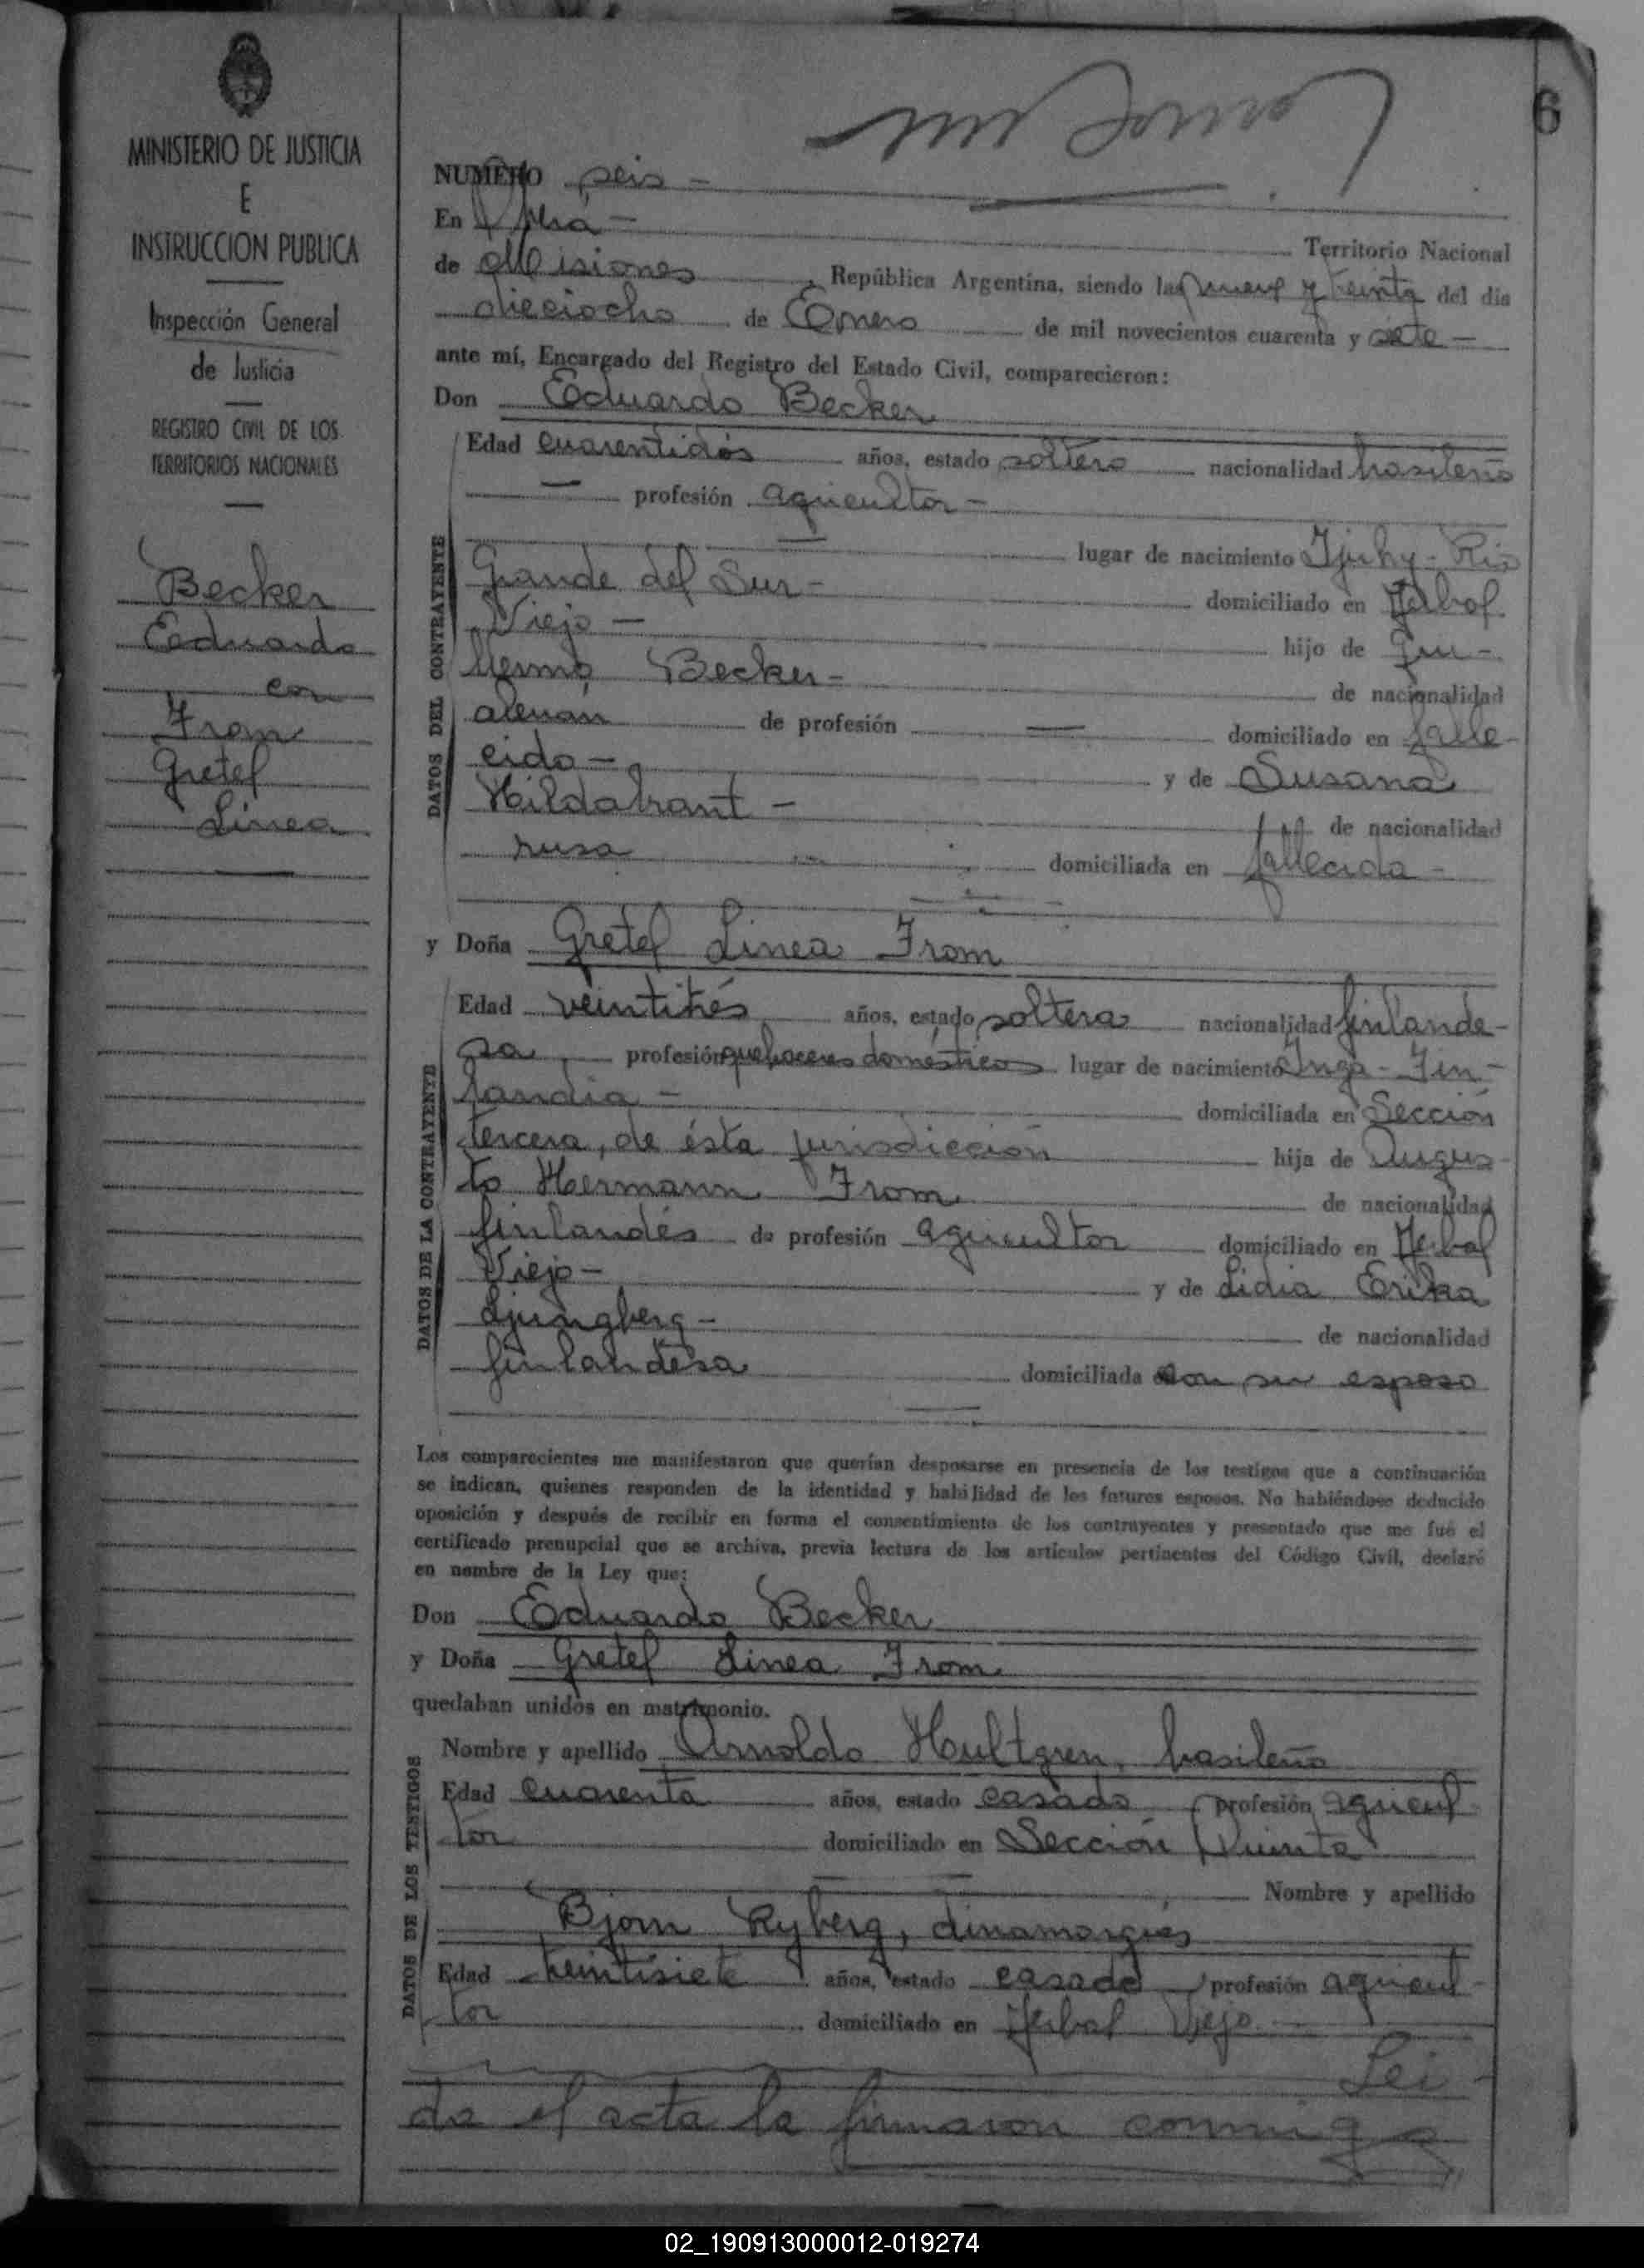 6
MINISTERIO DE JUSTICIA
E
INSTRUCCION PUBLICA
Inspección General
de Justicia
REGISTRO CIVIL DE LOS
TERRITORIOS NACIONALES
Becker
Eduardo
con
From
Gretel
Linea
NUMERO seis -
En Oberá -
Territorio Nacional
de Misiones, República Argentina, siendo las nueve y treinta del día
dieciocho de Enero de mil novecientos cuarenta y siete -
ante mí, Encargado del Registro del Estado Civil, comparecieron:
Don Eduardo Becker
DATOS DEL CONTRAYENTE
Edad cuarentidós años, estado soltero nacionalidad brasileño
- profesión agricultor -
lugar de nacimiento Ijuhy - Rio
Grande del Sur - domiciliado en Yerbal
Viejo - hijo de Gui-
llermo Becker - de nacionalidad
aleman de profesión — domiciliado en falle-
cido - y de Susana
Hildabrant - de nacionalidad
rusa domiciliada en fallecida -
y Doña Gretel Linea From
DATOS DE LA CONTRAYENTE
Edad veintitrés años, estado soltera nacionalidad finlande-
sa profesión quehaceres domésticos lugar de nacimiento Inga - Fin-
landia - domiciliada en Sección
tercera, de ésta jurisdicción hija de Augus-
to Hermann From de nacionalidad
finlandés de profesión agricultor domiciliado en Yerbal
Viejo - y de Lidia Erika
Ljungberg - de nacionalidad
finlandesa domiciliada con su esposo
Los comparecientes me manifestaron que querían desposarse en presencia de los testigos que a continuación
se indican, quienes responden de la identidad y habilidad de los futuros esposos. No habiéndose deducido
oposición y después de recibir en forma el consentimiento de los contrayentes y presentado que me fué el
certificado prenupcial que se archiva, previa lectura de los artículos pertinentes del Código Civil, declaré
en nombre de la Ley que:
Don Eduardo Becker
y Doña Gretel Linea From
quedaban unidos en matrimonio.
DATOS DE LOS TESTIGOS
Nombre y apellido Arnoldo Hultgren, brasileño
Edad cuarenta años, estado casado profesión agricul-
tor domiciliado en Sección Quinta
Nombre y apellido
Bjorn Ryberg, dinamarqués
Edad treintisiete años, estado casado profesión agricul-
tor domiciliado en Yerbal Viejo. -
Lei-
da el acta la firmaron conmigo
02_190913000012-019274